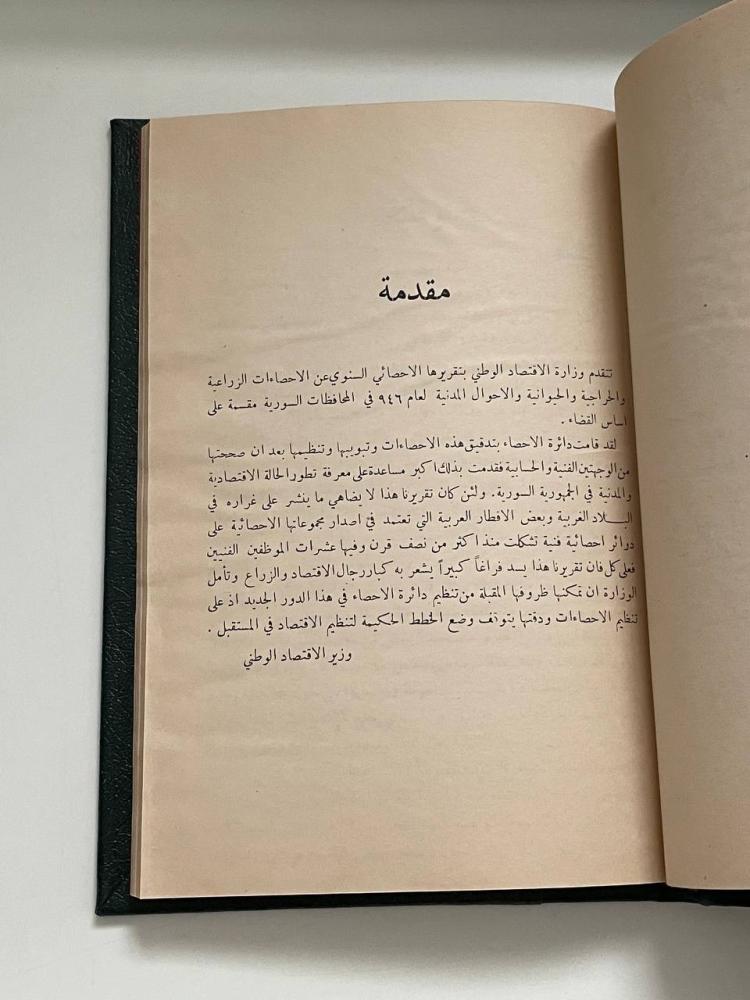 مقدمة
تتقدم وزارة الاقتصاد الوطني بتقريرها الاحصائي السنوي عن الاحصاءات الزراعية
والحراجية والحيوانية والاحوال المدنية لعام ٩٤٦ في المحافظات السورية مقسمة على
اساس القضاء .
لقد قامت دائرة الاحصاء بتدقيق هذه الاحصاءات وتبويبها وتنظيمها بعد ان صححتها
من الوجهتين الفنية والحسابية فقدمت بذلك اكبر مساعدة على معرفة تطور الحالة الاقتصادية
والمدنية في الجمهورية السورية . ولئن كان تقريرنا هذا لا يضاهي ما ينشر على غراره في
البـــلاد الغربية وبعض الاقطار العربية التي تعتمد في اصدار مجموعاتها الاحصائية على
دوائر احصائية فنية تشكلت منذ اكثر من نصف قرن وفيها عشرات الموظفين الفنيين
فعلى كل فان تقريرنا هذا يسد فراغاً كبيراً يشعر به كبار رجال الاقتصاد والزراع وتأمل
الوزارة ان تمكنها ظروفها المقبلة من تنظيم دائرة الاحصاء في هذا الدور الجديد اذ على
تنظيم الاحصاءات ودقتها يتوقف وضع الخطط الحكيمة لتنظيم الاقتصاد في المستقبل .
وزير الاقتصاد الوطني